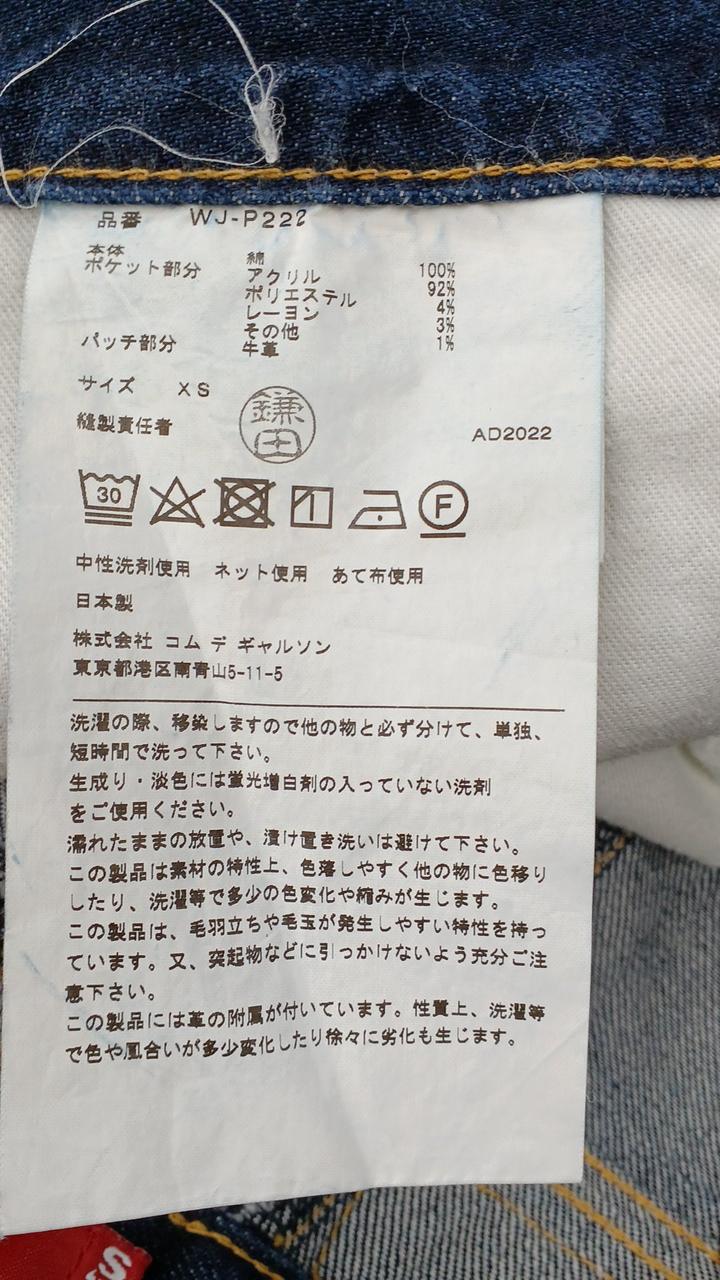 品番 WJ-P222
本体 綿 100%
ポケット部分 アクリル 92%
ポリエステル 4%
レーヨン 3%
その他 1%
パッチ部分 牛革
サイズ XS
縫製責任者 鎌田 AD2022
30 F
中性洗剤使用 ネット使用 あて布使用
日本製
株式会社 コム デ ギャルソン
東京都港区南青山5-11-5
洗濯の際、移染しますので他の物と必ず分けて、単独、
短時間で洗って下さい。
生成り・淡色には蛍光増白剤の入っていない洗剤
をご使用ください。
濡れたままの放置や、漬け置き洗いは避けて下さい。
この製品は素材の特性上、色落しやすく他の物に色移り
したり、洗濯等で多少の色変化や縮みが生じます。
この製品は、毛羽立ちや毛玉が発生しやすい特性を持っ
ています。又、突起物などに引っかけないよう充分ご注
意下さい。
この製品には革の附属が付いています。性質上、洗濯等
で色や風合いが多少変化したり徐々に劣化も生じます。